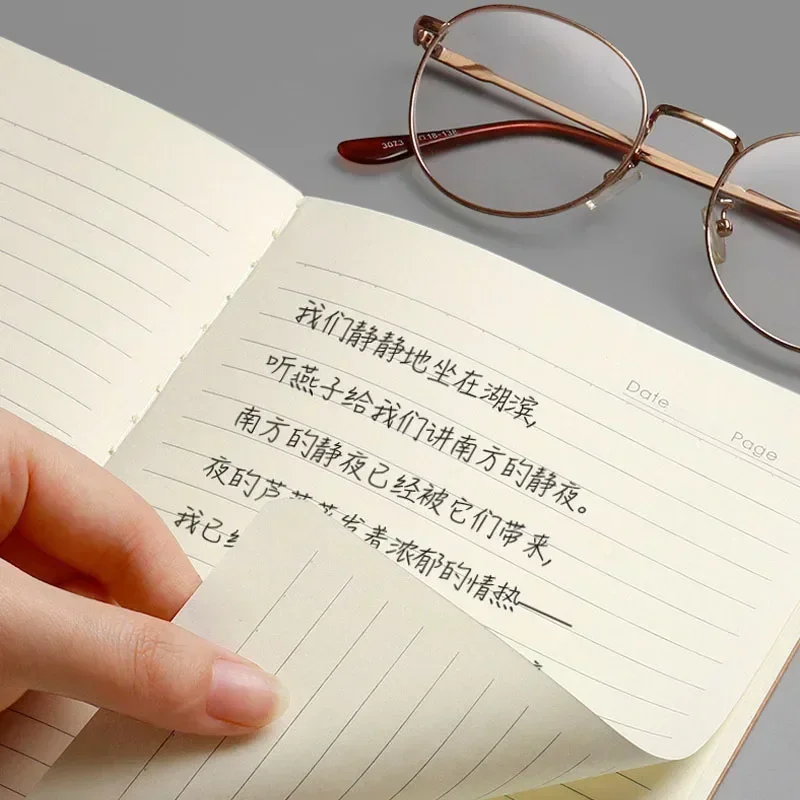 3023 □18-138
Date
Page
我们静静地坐在湖滨,
听燕子给我们讲南方的静夜。
南方的静夜已经被它们带来,
夜的芦 着浓郁的情热——
我已